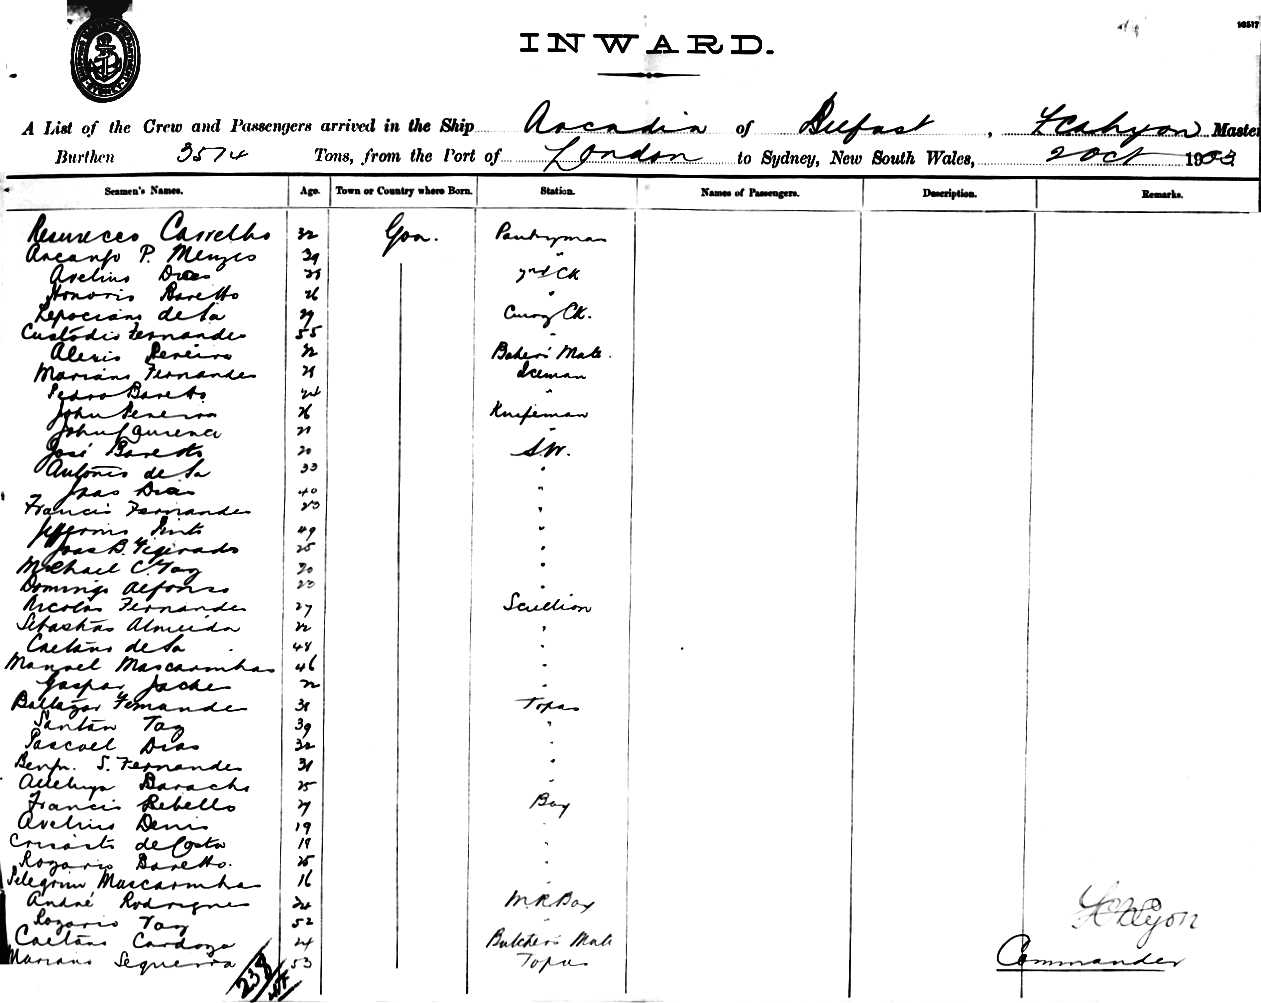 10517
INWARD.
A List of the Crew and Passengers arrived in the Ship Arcadia of Belfast, Master
Burthen 3574 Tons, from the Port of London to Sydney, New South Wales, 2 Oct 1903
Seamen's Names. Age. Town or Country where Born. Station. Names of Passengers. Description. Remarks.
Carrelho 32 Goa. Pantryman
P. Menzes 39 "
Avelino Dias 2nd Ck
Honorio Baretto 26 "
de Sa Curry Ck.
Custodio Fernandes 55 "
Alexis Pereira 22 Baker's Mate.
Mariano Fernandes 21 Iceman
Pedro Baretto 24 "
John Pereira 26 Knifeman
John 21 "
José Baretto 20 S.W.
Antonio de Sa 33 "
Joao Dias 40 "
Francis Fernandes 23 "
Pinto 49 "
Joao B. Figirado 25 "
Michael C. Tay 20 "
Domingo Alfonso 23 "
Nicolas Fernandes 27 Scullion
Sebastião Almeida 22 "
Caetano de Sa 48 "
Manoel Mascarenhas 46 "
Gaspar 22 "
Baltazar Fernandes 31 Topas
Santan Tay 39 "
Pascoel Dias 32 "
Benjn. S. Fernandes 31 "
25 "
Francis Rebello 27 Boy
Avelino Denis 19 "
de Costa 19 "
Rozario Baretto. 25 "
Pelegrim Mascarenhas 16 "
André Rodrigues 24 M.R. Boy
Rozario Tay 52 "
Caetano Cardoza 24 Butcher's Mate
Mariano Sequeira 53 Topas
238
Commander